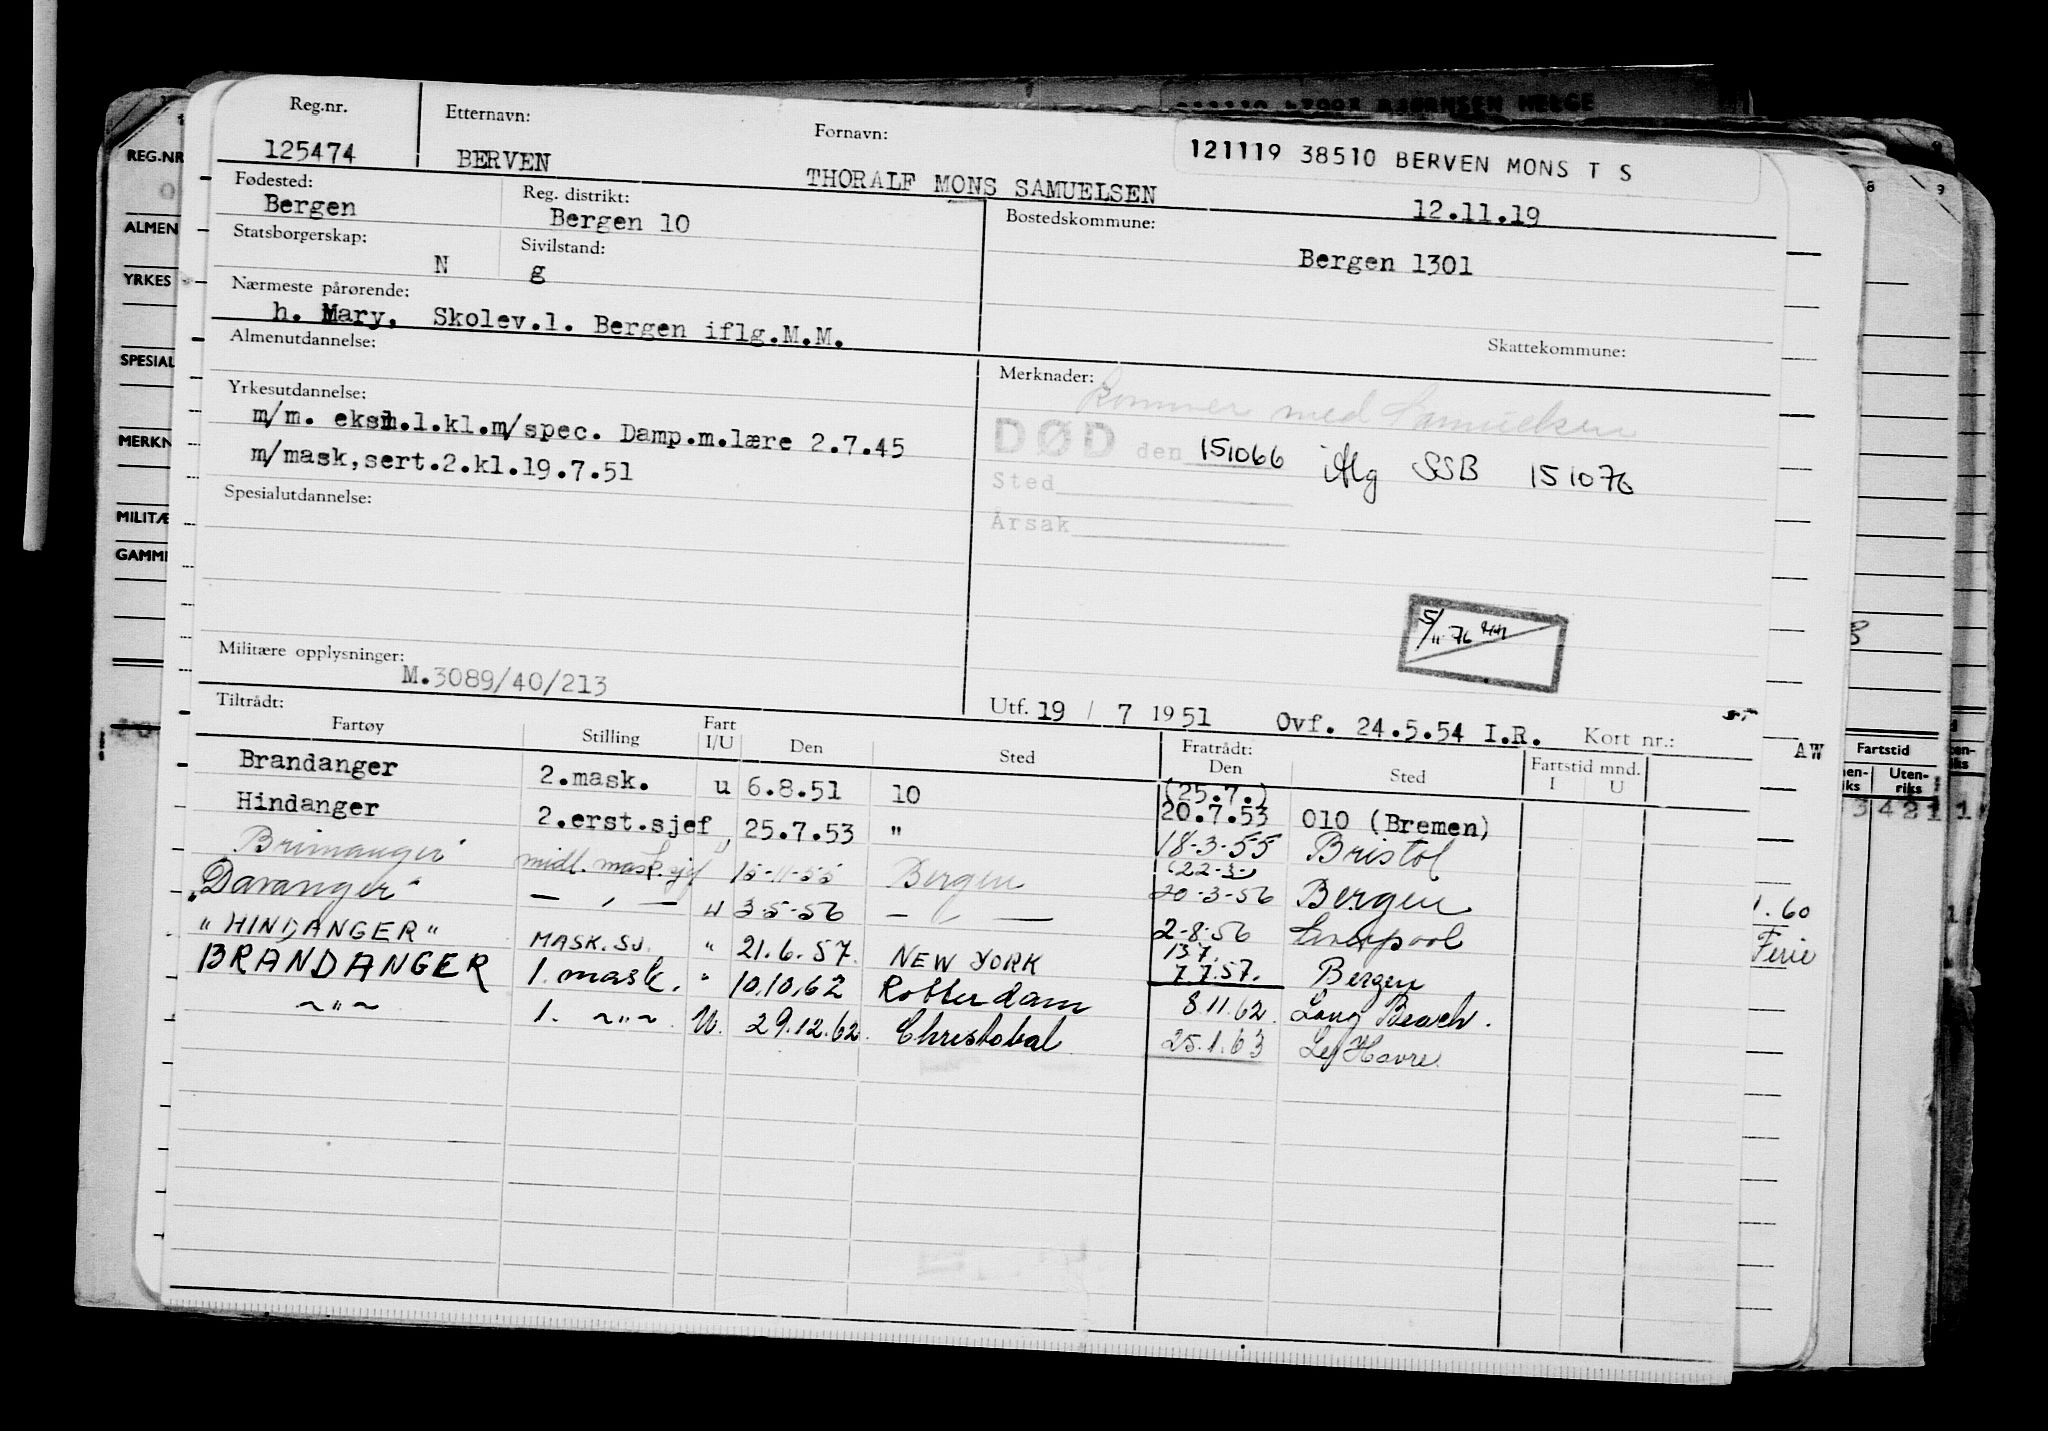 Reg.nr. Etternavn: Fornavn:
121119 38510 BERVEN MONS T S
125474 BERVEN THORALF MONS SAMUELSEN 12.11.19
Fødested: Reg. distrikt: Bostedskommune:
Bergen Bergen 10 Bergen 1301
Statsborgerskap: Sivilstand:
N g
Nærmeste pårørende:
h. Mary, Skolev.1. Bergen iflg.M.M.
Skattekommune:
Almenutdannelse: Merknader:
Kommer med Samuelsen
Yrkesutdannelse:
m/m. eksm.1.kl.m/spec. Damp.m.lære 2.7.45
m/mask,sert.2.kl.19.7.51
DØD den 151066 iflg SSB 151076
Sted
Årsak
Spesialutdannelse:
5/11 76
Militære opplysninger:
M.3089/40/213
Utf. 19 / 7 1951 Ovf. 24.5.54 I.R. Kort nr.:
Tiltrådt: Fratrådt:
Fartøy Stilling Fart I/U Den Sted Den Sted Fartstid mnd. I U
Brandanger 2.mask. u 6.8.51 10 (25.7.) 20.7.53 010 (Bremen)
Hindanger 2.erst.sjef " 25.7.53 " 18-3-55 Bristol
Brimanger midl. mask.sjef 15-11-55 Bergen (22-3-) 20-3-56 Bergen
"Davanger" — " — u 3-5-56 — " — 2-8-56 Liverpool
"HINDANGER" MASK.SJ. " 21.6.57. NEW YORK 13.7. 7.7.57. Bergen
BRANDANGER 1. mask. " 10.10.62 Rotterdam 8.11.62. Long Beach.
~"~ 1. ~"~ U. 29.12.62. Christobal 25.1.63 Le Havre.
REG.NR
ALMEN
YRKES
SPESIAL
MERKN
MILITÆ
GAMM
8 9
AW
Fartstid
Uten-
riks
1.60
Ferie